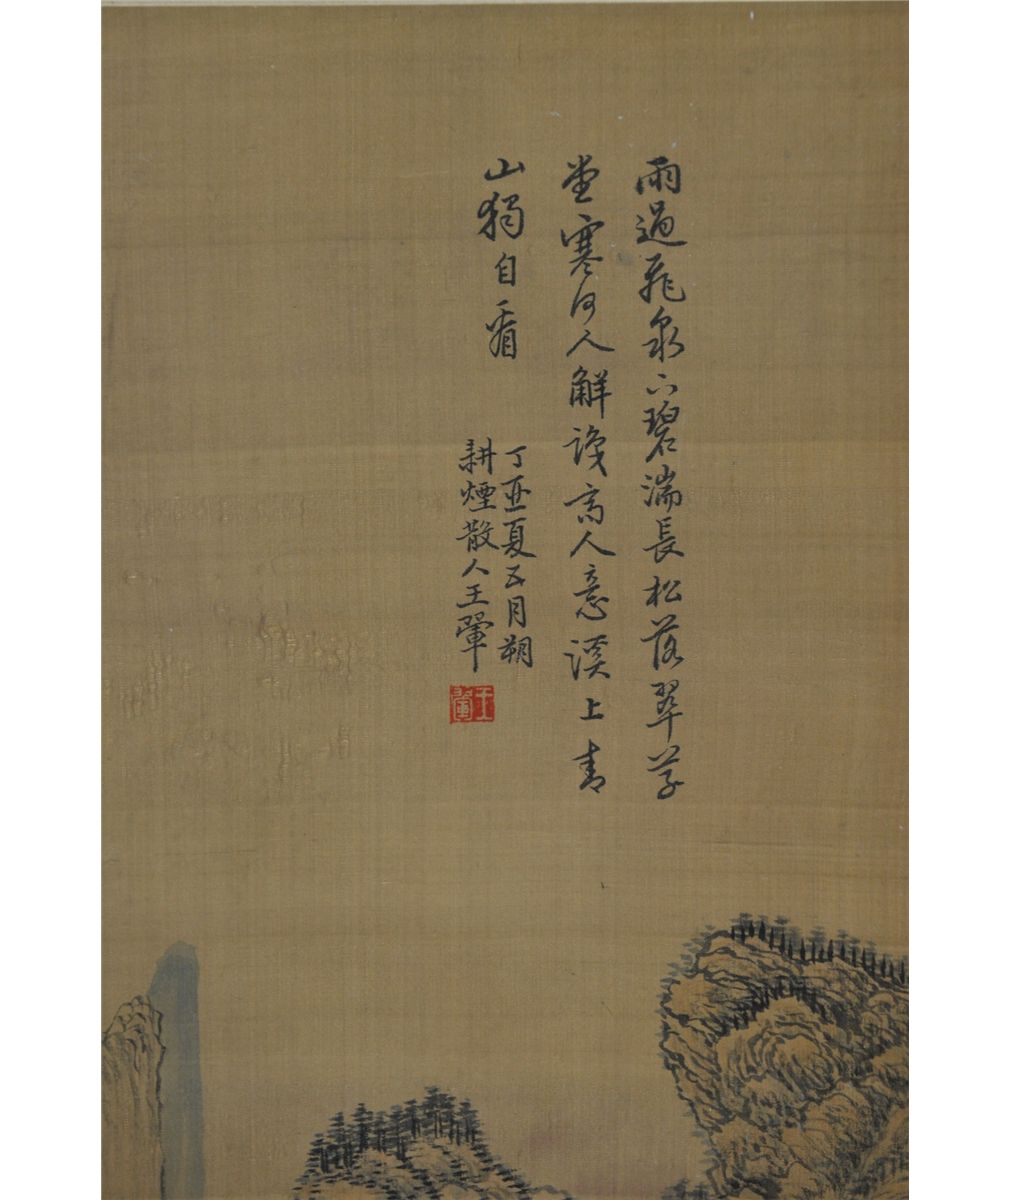 雨過飛泉下碧湍長松落翠草
堂寒何人解識高人意溪上青
山獨自看
丁亥夏五月朔
耕煙散人王翬
王翬